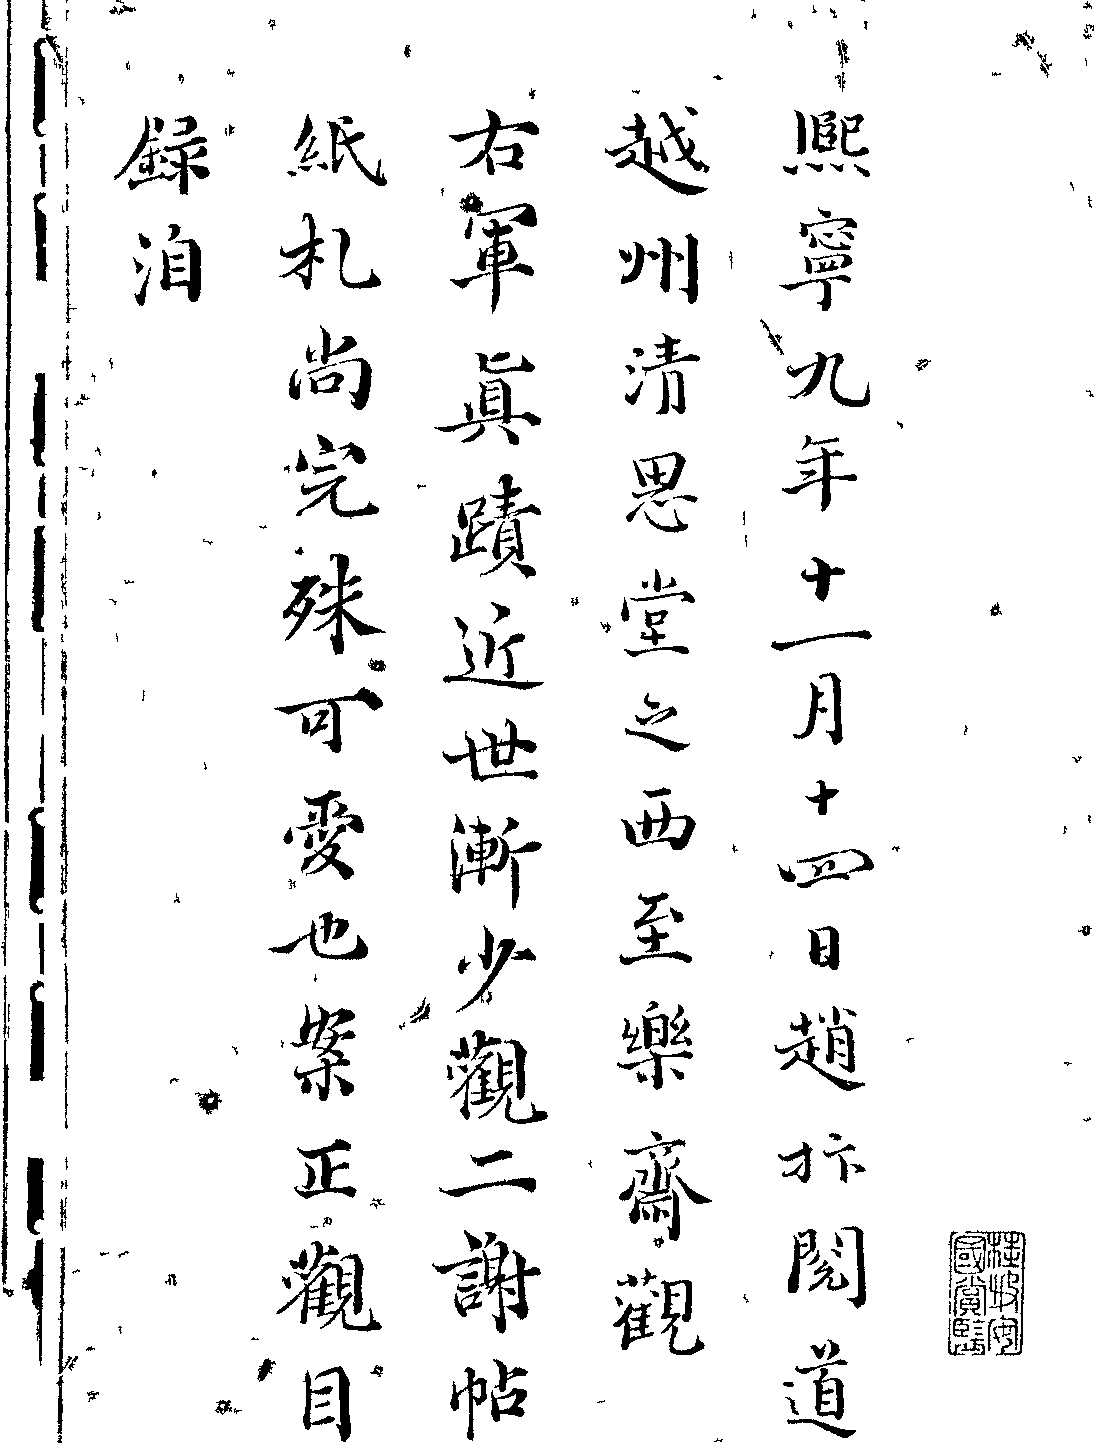 熙寧九年十一月十四日趙抃閱道
越州清思堂之西至樂齋觀
右軍眞蹟近世漸少觀二謝帖
紙札尚完殊可愛也案正觀目
錄洎
桂坡安
國賞鑒